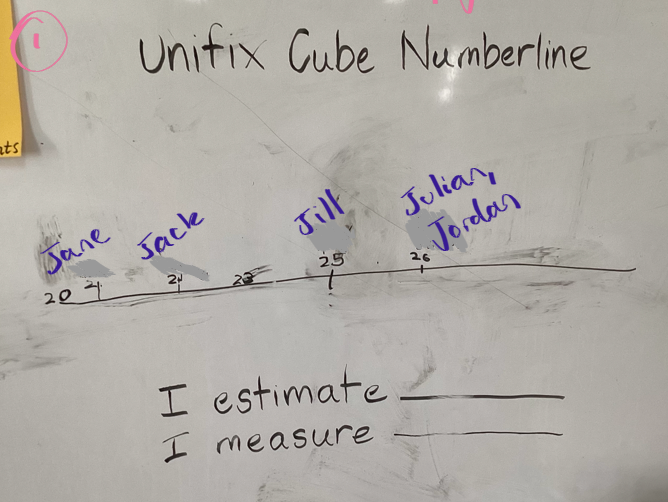 1
Unifix Cube Numberline
ats
Jane Jack Jill Julian,
Jordan
20 21 25 26
I estimate
I measure